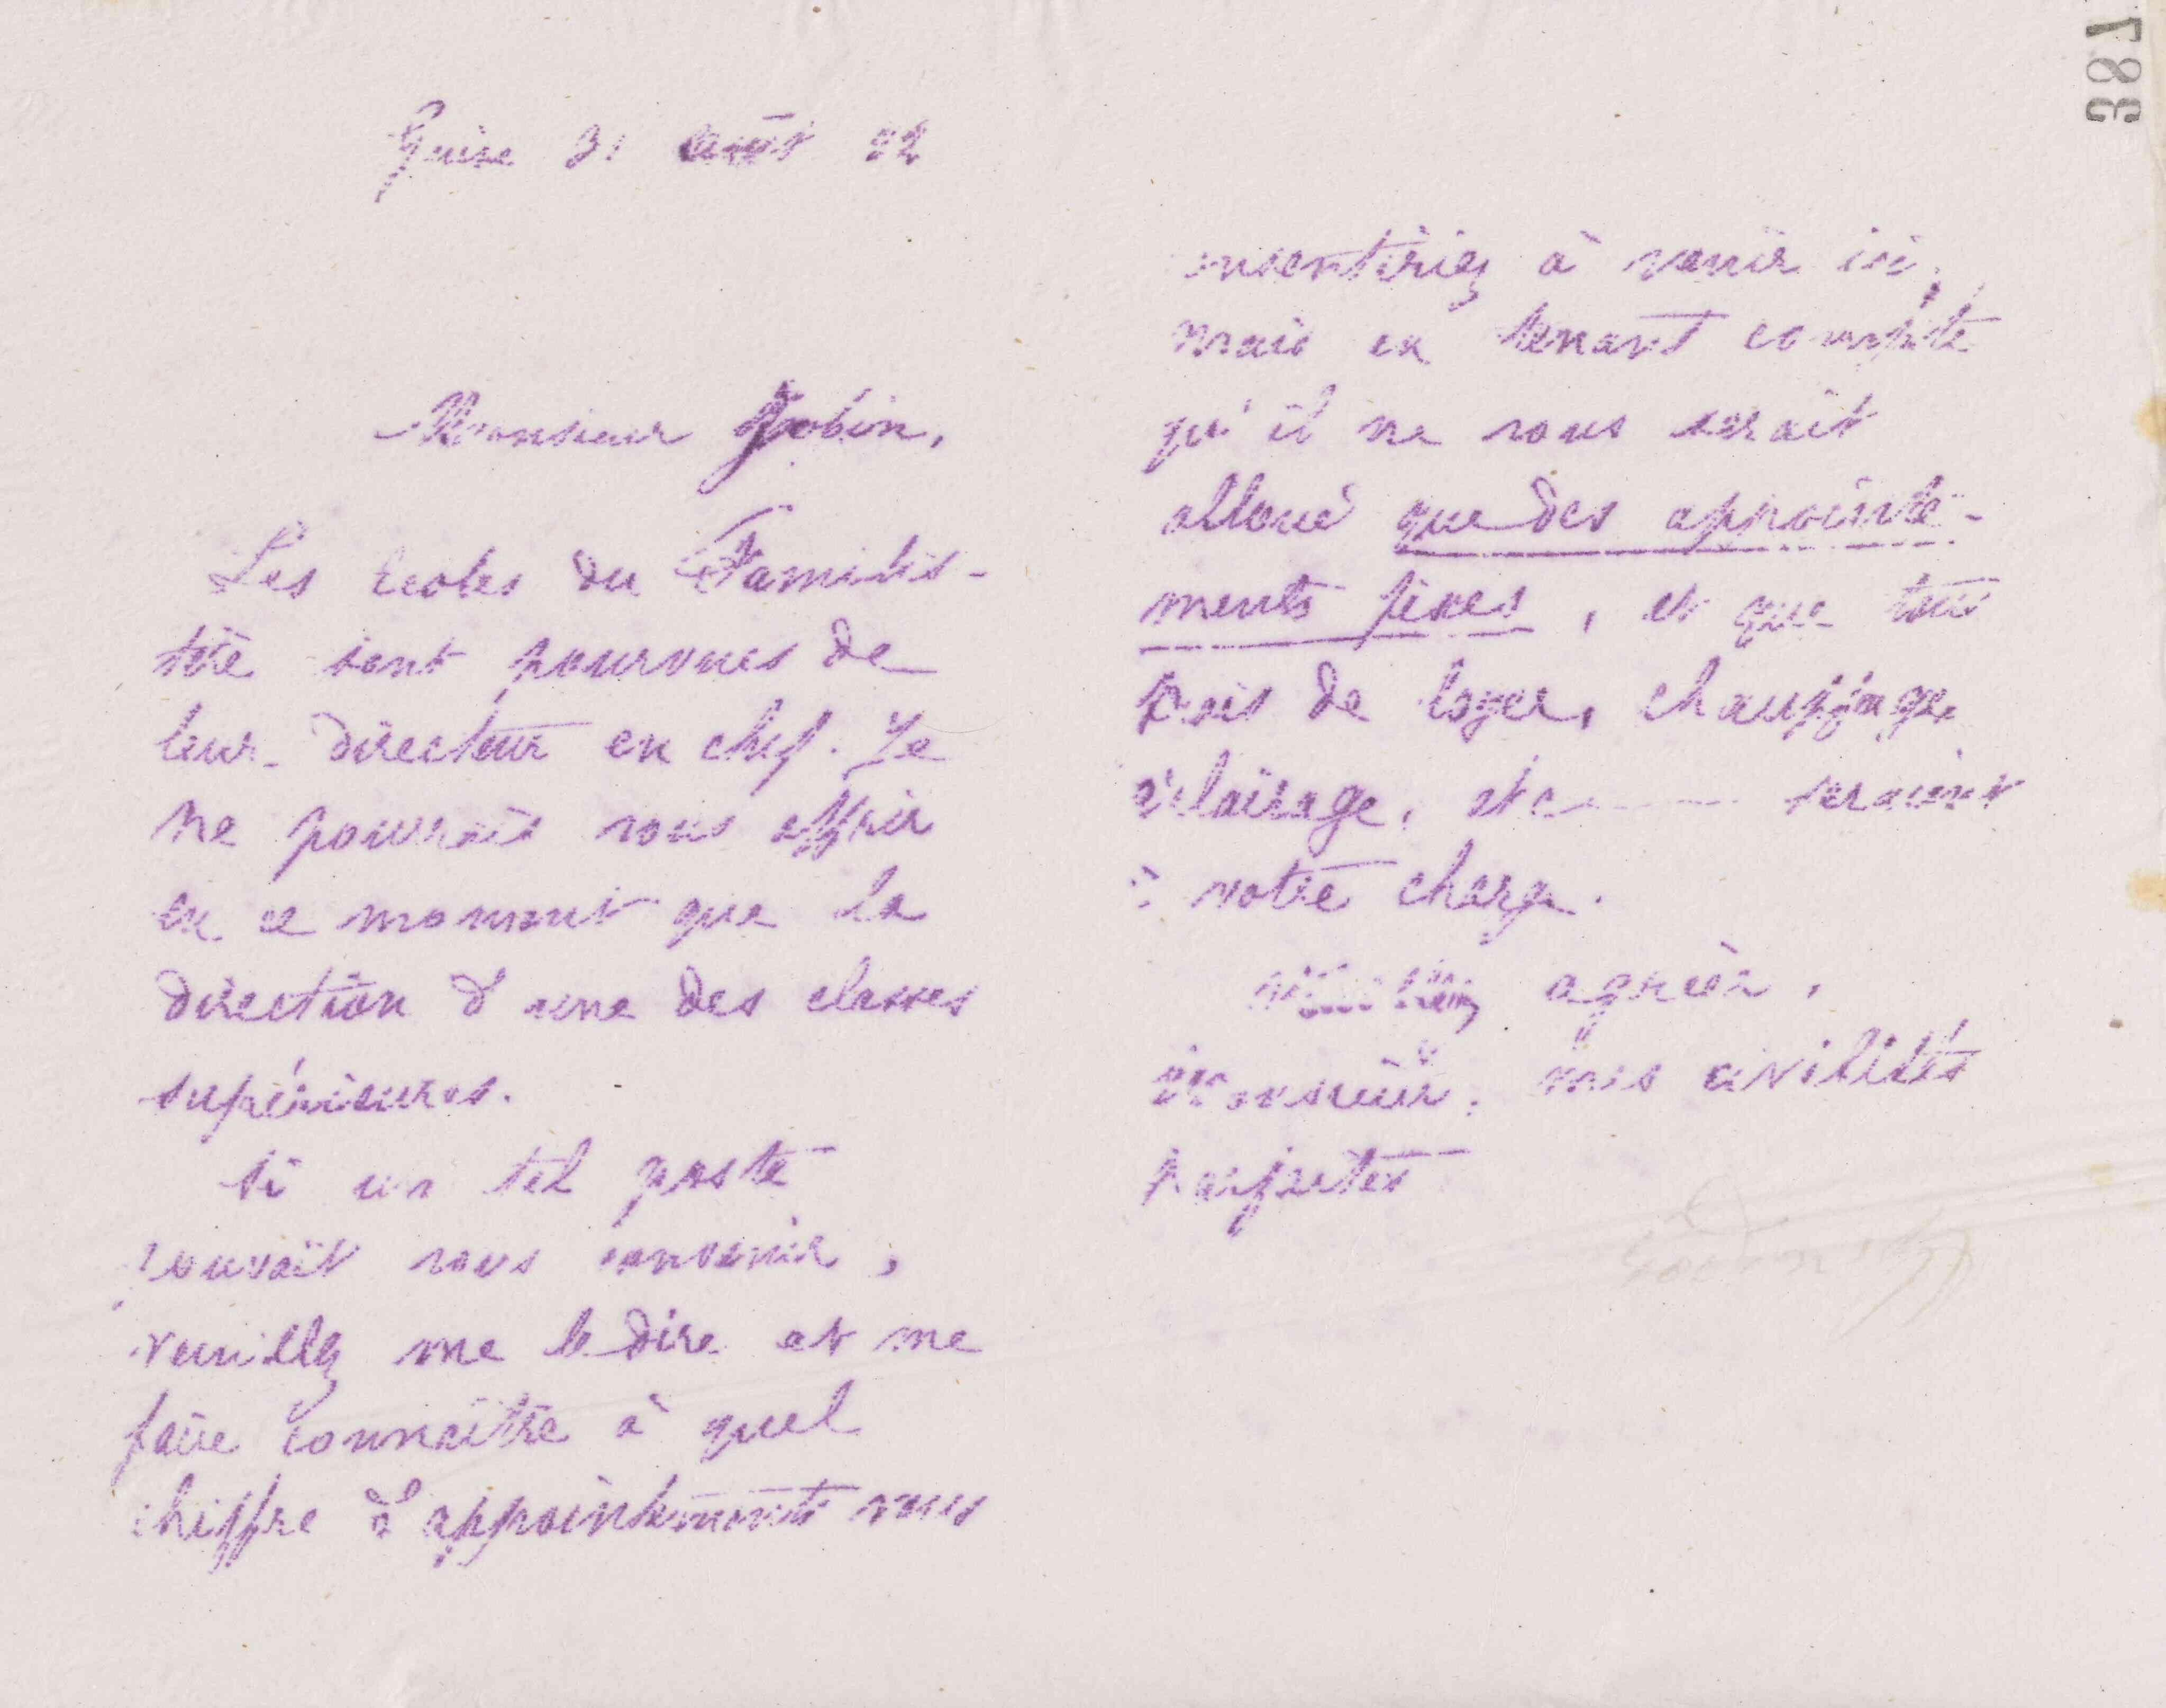 387
Guise 31 août 82
Monsieur Jobin,
Les Ecoles du Familis-
tère sont pourvues de
leur directeur en chef. Je
ne pourrais vous offrir
en ce moment que la
direction d'une des classes
supérieures.
Si un tel poste
pouvait vous convenir,
veuillez me le dire et me
faire connaître à quel
chiffre d'appointements vous
consentiriez à venir ici,
mais en tenant compte
qu'il ne vous serait
alloué que des appointe-
ments fixes, et que tous
frais de loyer, chauffage,
éclairage, etc---- seraient
à votre charge.
Veuillez agréer,
Monsieur, mes civilités
parfaites
Godin